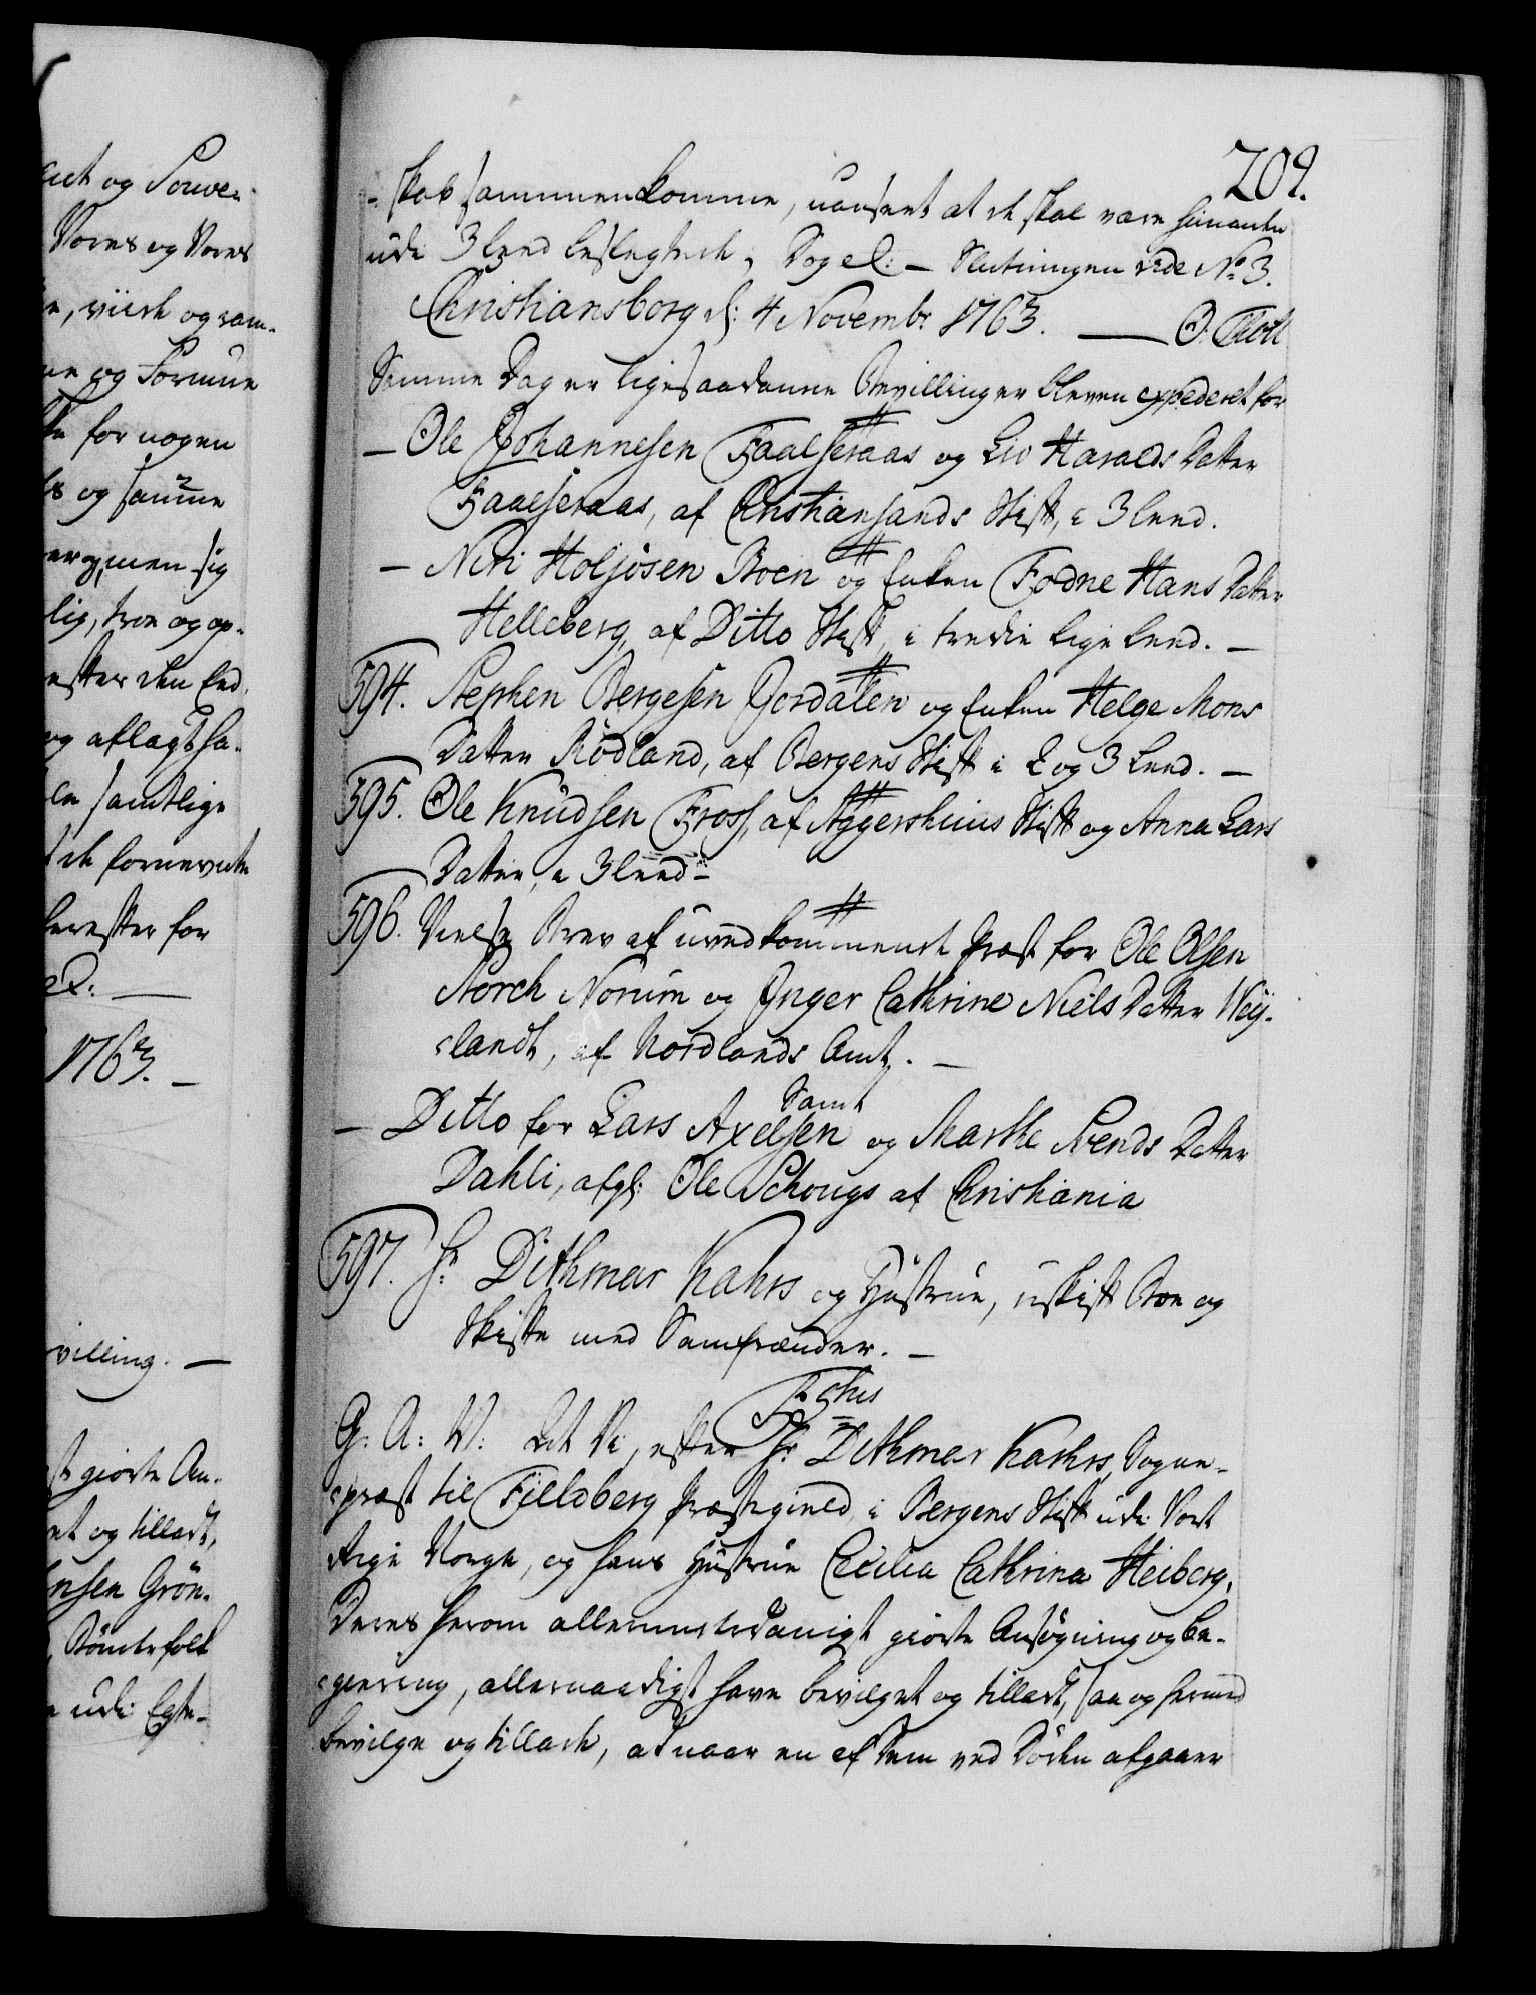 209.
-skab sammenkomme, uanseet at de skal være hinanden
udi 3 Leed beslegtede, Dog el: — Slutningen vide No 3.
Christiansborg d: 4 Novembr 1763. — O: Thott
Samme Dag er ligesaadanne Bevillinger bleven expederet for
— Ole Johannesen Faalseraas og Liv Haralds Datter
Faaleseraas, af Christiansands Stift, i 3 Leed.
— Niri Holjösen Boen og Enken Fodne Hans Datter
Helleberg, af Ditto Stift, i tredie lige Leed. —
594. Stephen Bergesen Gordalen og Enken Helge Mons
Datter Rödland, af Bergens Stift i 2 og 3 Leed. —
595. Ole Knudsen Fross, af Aggershuus Stift og Anna Lars
Datter, i 3 Leed —
596. Vielse Brev af uvedkommende Præst for Ole Olsen
Storch Norum og Inger Cathrine Niels Datter Weÿ-
landt, af Nordlands Amt. —
Samt
— Ditto for Lars Axelsen og Marthe Svends Datter
Dahli, afgl: Ole Schougs af Christiania
597. Hr Dithmar Kahrs og Hustrue, uskift Boe og
Skifte med Samfrænder. —
F 5tus
G: A: V: At Vi, efter Hr Dithmar Kahrs, Sogne-
præst til Fieldberg Præstegield, i Bergens Stift udi Vort
Rige Norge, og hans Hustrue Cecilia Cathrina Heiberg,
Deres herom allerunderdanigst giorte Ansøgning og Be-
giering, allernaadigst have bevilget og tilladt, saa og hermed
bevilge og tillade, at naar en af Dem ved Døden afgaaer